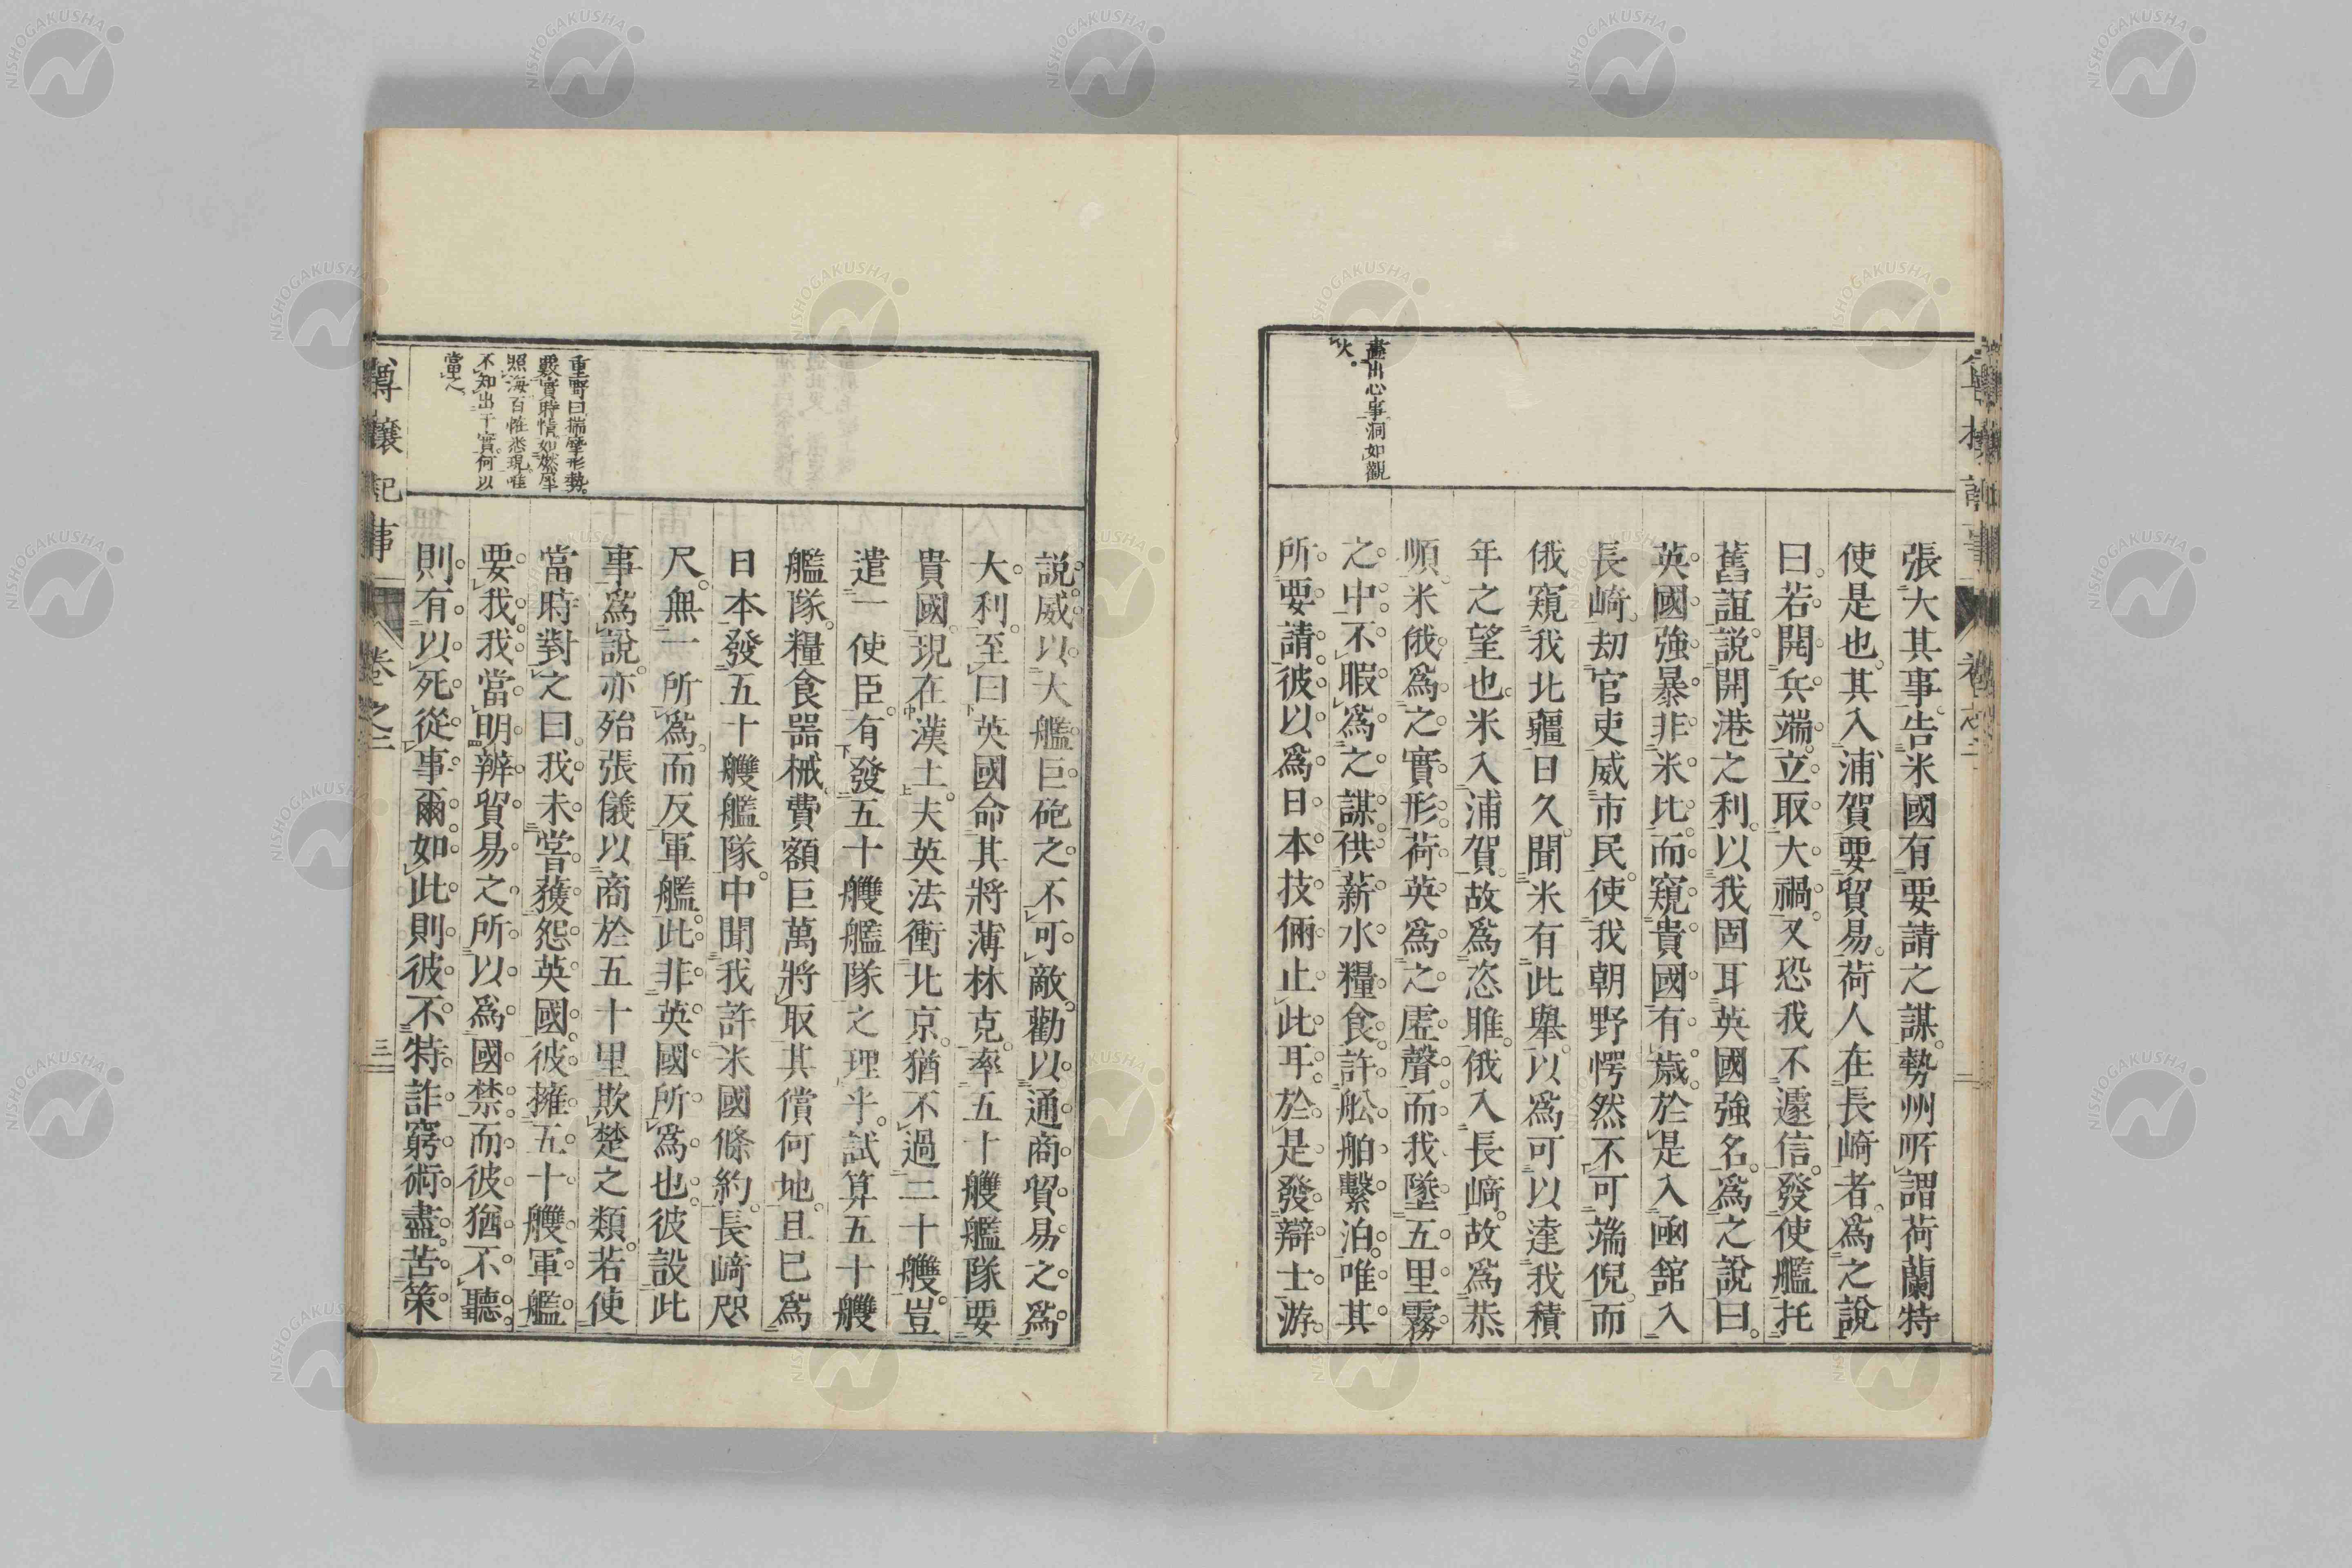 盡出心事洞如觀
火。
張大其事。告米國有要請之謀。勢州所謂荷蘭特
使是也。其入浦賀要貿易。荷人在長崎者。爲之說
曰。若開兵端。立取大禍。又恐我不遽信。發使艦托
舊誼。說開港之利。以我固耳英國強名。爲之說曰。
英國強暴。非米比。而窺貴國有歲。於是入函館入
長崎。劫官吏威市民。使我朝野愕然不可端倪。而
俄窺我北疆日久。聞米有此舉。以爲可以達我積
年之望也。米入浦賀。故爲恣睢。俄入長崎。故爲恭
順。米俄爲之實形。荷英爲之虛聲。而我墜五里霧
之中。不暇爲之謀。供薪水糧食。許舩舶繫泊。唯其
所要請。彼以爲日本技倆止此耳。於是發辯士游
說。威以大艦巨砲之不可敵。勸以通商貿易之爲
大利。至曰英國命其將薄林克。率五十艘艦隊要
貴國。現在漢土。夫英法衝北京。猶不過三十艘。豈
遣一使臣。有發五十艘艦隊之理乎。試算五十艘
艦隊。糧食器械。費額巨萬。將取其償何地。且已爲
日本發五十艘艦隊。中聞我許米國條約。長崎咫
尺。無一所爲。而反軍艦。此非英國所爲也。彼設此
事爲說。亦殆張儀以商於五十里欺楚之類。若使
當時對之曰。我未嘗獲怨英國。彼擁五十艘軍艦
要我。我當明辨貿易之所以爲國禁。而彼猶不聽。
則有以死從事爾。如此則彼不特詐窮術盡。苦策
重野曰揣摩形勢。
覈實時情。如燃犀
照海百怪悉現。唯
不知出于實。何以
當之。
尊攘記事
卷之二
三